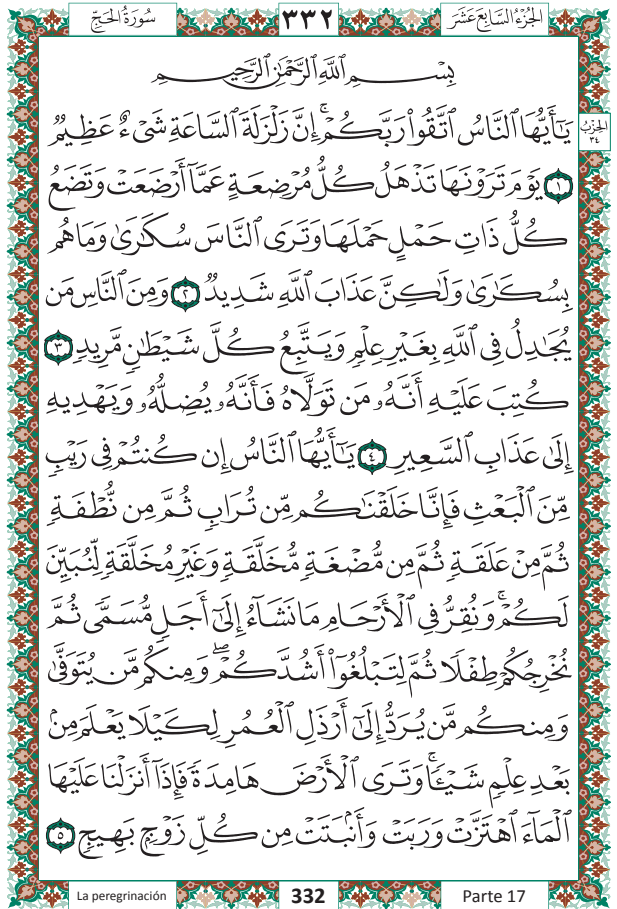 سُورَةُ الحَجِّ
٣٣٢
الجُزْءُ السَّابِعَ عَشَرَ
بِسْمِ ٱللَّهِ ٱلرَّحْمَٰنِ ٱلرَّحِيمِ
يَٰٓأَيُّهَا ٱلنَّاسُ ٱتَّقُوا۟ رَبَّكُمْ ۚ إِنَّ زَلْزَلَةَ ٱلسَّاعَةِ شَىْءٌ عَظِيمٌ
الحِزْبُ
٣٤
١ يَوْمَ تَرَوْنَهَا تَذْهَلُ كُلُّ مُرْضِعَةٍ عَمَّآ أَرْضَعَتْ وَتَضَعُ
كُلُّ ذَاتِ حَمْلٍ حَمْلَهَا وَتَرَى ٱلنَّاسَ سُكَٰرَىٰ وَمَا هُم
بِسُكَٰرَىٰ وَلَٰكِنَّ عَذَابَ ٱللَّهِ شَدِيدٌ ٢ وَمِنَ ٱلنَّاسِ مَن
يُجَٰدِلُ فِى ٱللَّهِ بِغَيْرِ عِلْمٍ وَيَتَّبِعُ كُلَّ شَيْطَٰنٍ مَّرِيدٍ ٣
كُتِبَ عَلَيْهِ أَنَّهُۥ مَن تَوَلَّاهُ فَأَنَّهُۥ يُضِلُّهُۥ وَيَهْدِيهِ
إِلَىٰ عَذَابِ ٱلسَّعِيرِ ٤ يَٰٓأَيُّهَا ٱلنَّاسُ إِن كُنتُمْ فِى رَيْبٍ
مِّنَ ٱلْبَعْثِ فَإِنَّا خَلَقْنَٰكُم مِّن تُرَابٍ ثُمَّ مِن نُّطْفَةٍ
ثُمَّ مِنْ عَلَقَةٍ ثُمَّ مِن مُّضْغَةٍ مُّخَلَّقَةٍ وَغَيْرِ مُخَلَّقَةٍ لِّنُبَيِّنَ
لَكُمْ ۚ وَنُقِرُّ فِى ٱلْأَرْحَامِ مَا نَشَآءُ إِلَىٰٓ أَجَلٍ مُّسَمًّى ثُمَّ
نُخْرِجُكُمْ طِفْلًا ثُمَّ لِتَبْلُغُوٓا۟ أَشُدَّكُمْ ۖ وَمِنكُم مَّن يُتَوَفَّىٰ
وَمِنكُم مَّن يُرَدُّ إِلَىٰٓ أَرْذَلِ ٱلْعُمُرِ لِكَيْلَا يَعْلَمَ مِنۢ
بَعْدِ عِلْمٍ شَيْـًٔا ۚ وَتَرَى ٱلْأَرْضَ هَامِدَةً فَإِذَآ أَنزَلْنَا عَلَيْهَا
ٱلْمَآءَ ٱهْتَزَّتْ وَرَبَتْ وَأَنۢبَتَتْ مِن كُلِّ زَوْجٍۭ بَهِيجٍ ٥
La peregrinación
332
Parte 17